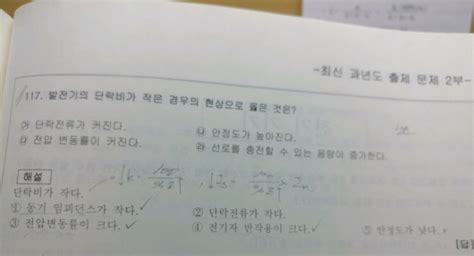 -최신 과년도 출제 문제 2부-
117. 발전기의 단락비가 작은 경우의 현상으로 옳은 것은?
㉮ 단락전류가 커진다.
㉯ 안정도가 높아진다.
㉰ 전압 변동률이 커진다.
㉱ 선로를 충전할 수 있는 용량이 증가한다.
해설
단락비가 작다.
① 동기 임피던스가 작다.
② 단락전류가 작다.
③ 전압변동률이 크다.
④ 전기자 반작용이 크다.
⑤ 안정도가 낮다.
[답]